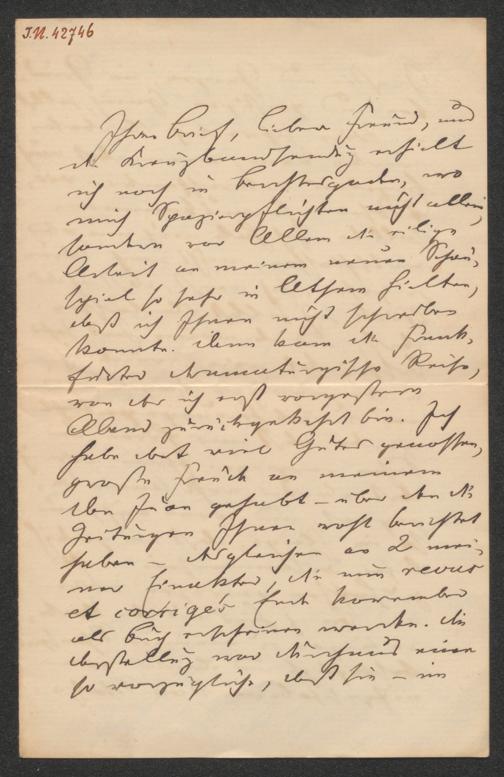 J.N. 42746
Ihren Brief, lieber Freund, und
die Kreuzbandsendung erhielt
ich noch in Berchtesgaden, wo
mich Spazierpflichten nicht allein,
sondern vor Allem die eilige
Arbeit an meinem neuen Schau-
spiel so sehr in Athem hielten,
daß ich Ihnen nicht schreiben
konnte. Dann kam die Frank-
furter dramaturgische Reise,
von der ich erst vorgestern
Abend zurückgekehrt bin. Ich
habe dort viel Gutes genossen,
große Freude an meinem
Don Juan gehabt – über den die
Zeitungen Ihnen wohl berichtet
haben – desgleichen an 2 mei-
ner Einakter, die nun revus
et corrigés Ende November
als Buch erscheinen werden. Die
Darstellung war durchaus eine
so vorzügliche, daß sie – im